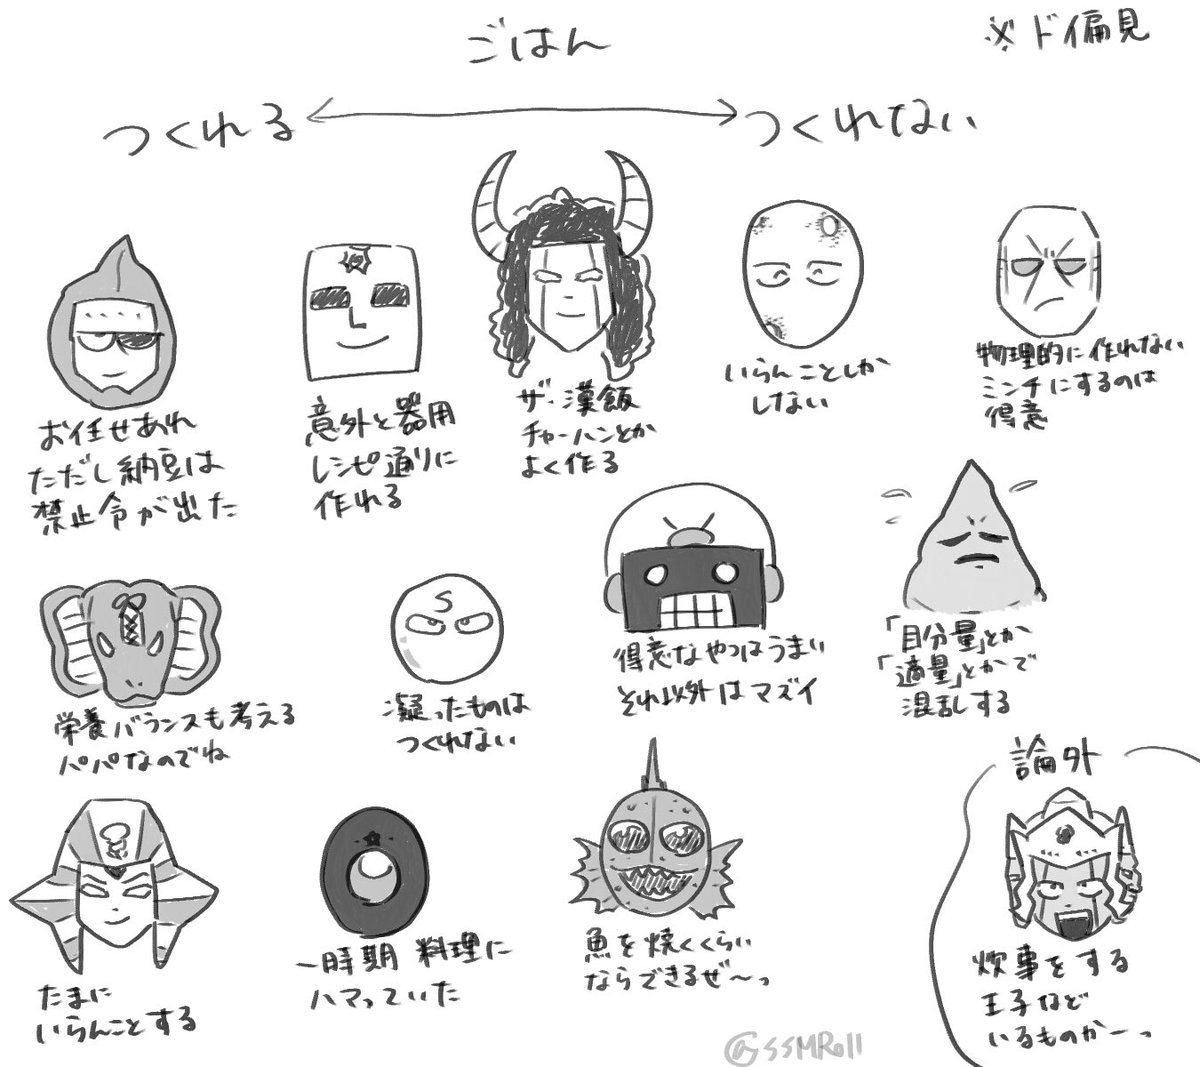 ごはん
※ドイ偏見
つくれる
つくれない
お任せあれ
ただし納豆は
禁止令が出た
意外と器用
レシピ通りに
作れる
ザ・漢飯
チャーハンとか
よく作る
いらんことしか
しない
物理的に作れない
ミンチにするのは
得意
栄養バランスも考える
パパなのでね
S
凝ったものは
つくれない
得意なやつはうまい
それ以外はマズイ
「目分量」とか
「適量」とかで
混乱する
たまに
いらんことする
一時期 料理に
ハマっていた
魚を焼くくらい
ならできるぜ〜っ
論外
炊事をする
王子など
いるものかーっ
@SSMRoll